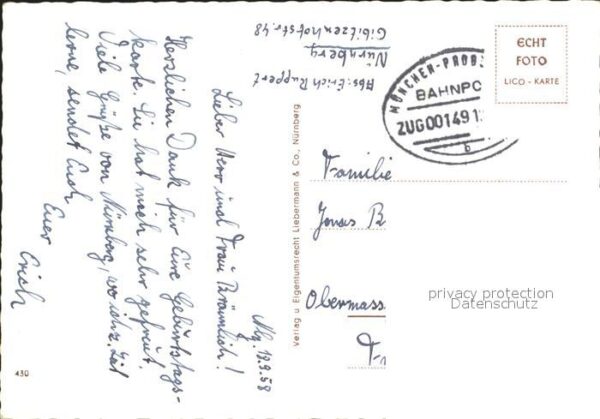 Abs: Erich Ruppert
Nürnberg
Gibitzenhofstr. 48
Nbg. 19.9.58
Lieber Herr und Frau Bräunlich!
Herzlichen Dank für Eure Geburtstags-
karte. Sie hat mich sehr gefreut.
Viele Grüße von Nürnberg, wo ihr z. Zt
lerne, sendet Euch
Euer
Erich
430
Verlag u Eigentumsrecht Liebermann & Co., Nürnberg
MÜNCHEN-PROB
BAHNPO
ZUG001491
b
ECHT
FOTO
LICO - KARTE
Familie
Jonas B
Obermass
privacy protection
Datenschutz